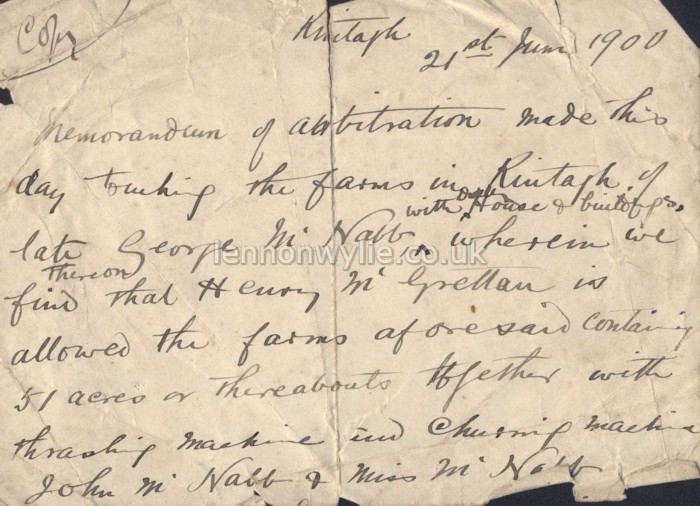 Copy
Kintagh
21st June 1900
Memorandum of arbitration made this
day touching the farms in Kintagh of
with House & buildings
late George Mc Nabb, wherein we
thereon
find that Henry Mc Grettan is
allowed the farms aforesaid containing
51 acres or thereabouts together with
thrashing machine and churning machine
John Mc Nabb & Miss Mc Nabb
lennonwylie.co.uk